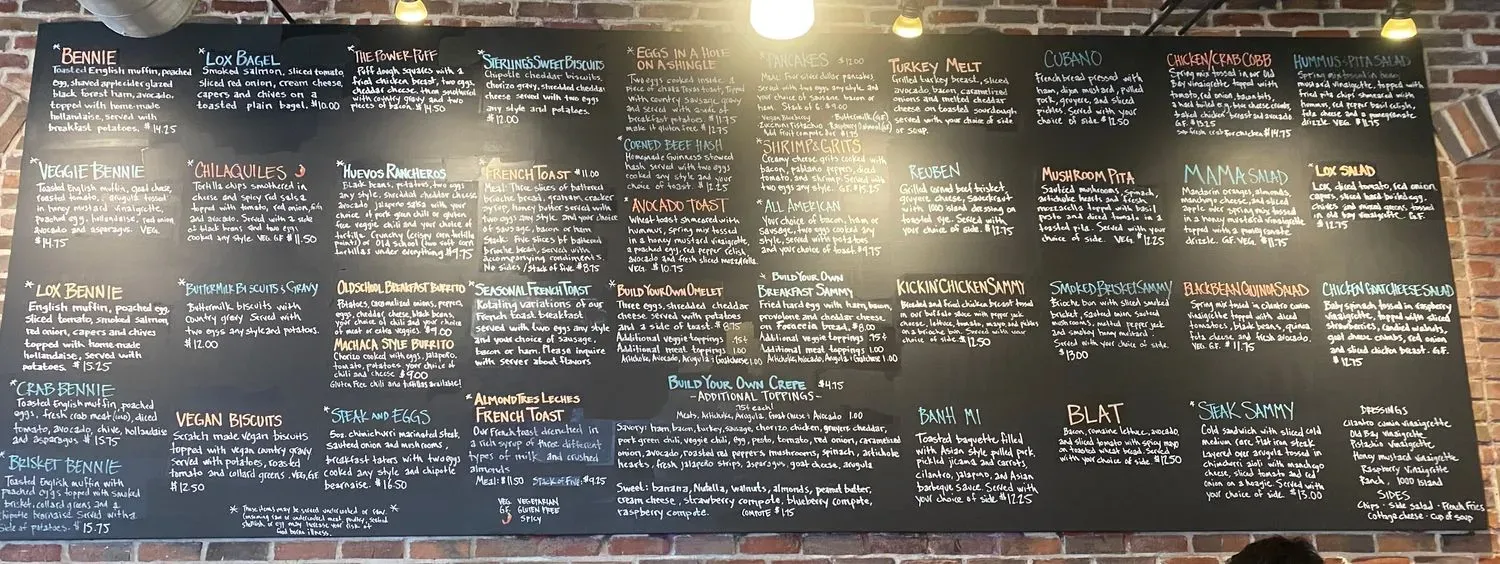 *BENNIE
Toasted English muffin, poached
egg, shaved apple cider glazed
black forest ham, avocado,
topped with home-made
hollandaise, served with
breakfast potatoes. $14.25
*VEGGIE BENNIE
Toasted English muffin, goat cheese,
roasted tomato, arugula tossed
in honey mustard vinaigrette,
poached egg, hollandaise, red onion
avocado and asparagus. VEG.
$14.75
*LOX BENNIE
English muffin, poached egg,
sliced tomato, smoked salmon,
red onion, capers and chives
topped with home-made
hollandaise, served with
potatoes. $15.25
*CRAB BENNIE
Toasted English muffin, poached
eggs, fresh crab meat (), diced
tomato, avocado, chive, hollandaise
and asparagus $15.75
*BRISKET BENNIE
Toasted English muffin with
poached eggs topped with smoked
brisket, collard greens and a
chipotle bearnaise. Served with a
side of potatoes. $15.75
*LOX BAGEL
Smoked salmon, sliced tomato,
sliced red onion, cream cheese,
capers and chives on a
toasted plain bagel. $10.00
*CHILAQUILES
Tortilla chips smothered in
cheese and spicy red salsa
topped with tomato, red onion,
and avocado. Served with a side
of black beans and two eggs
cooked any style. VEG. GF $11.50
*BUTTERMILK BISCUITS & GRAVY
Buttermilk biscuits with
country gravy. Served with
two eggs any style and potatoes.
$12.00
VEGAN BISCUITS
Scratch made vegan biscuits
topped with vegan country gravy
served with potatoes, roasted
tomato and collard greens. VEG, GF.
$12.50
* These items may be served undercooked or raw. *
Consuming raw or undercooked meat, poultry, seafood
shellfish or egg may increase your risk of
food borne illness.
*THE POWER PUFF
Puff dough squares with a
fried chicken breast, two eggs,
cheddar cheese, then smothered
with country gravy and two
pieces of bacon. $14.50
*HUEVOS RANCHEROS
Black beans, potatoes, two eggs
any style, shredded cheddar cheese
avocado jalapeno salsa with your
choice of pork green chili or gluten
free veggie chili and your choice of
tortilla. Crunchy (crispy corn tortilla
points) or Old school (two soft corn
tortillas under everything $9.75
OLD SCHOOL BREAKFAST BURRITO
Potatoes, caramelized onions, peppers,
eggs, cheddar cheese, black beans,
your choice of chili and your choice
of meat or extra veggies. $9.00
MACHACA STYLE BURRITO
Chorizo cooked with eggs, jalapeno,
tomato, potatoes, your choice of
chili and cheese $9.00
Gluten Free chili and tortillas available!
*STEAK AND EGGS
5oz. chimichurri marinated steak,
sauteed onion and mushrooms,
breakfast taters with two eggs
cooked any style and chipotle
bearnaise. $16.50
*STERLING'S SWEET BISCUITS
Chipotle cheddar biscuits,
Chorizo gravy, shredded cheddar
cheese served with two eggs
any style and potatoes.
$12.00
*FRENCH TOAST $11.00
Meal: Three slices of battered
brioche bread, graham cracker
syrup, honey butter served with
two eggs any style, and your choice
of sausage, bacon or ham
Stack: Five slices of battered
brioche bread, served with
accompanying condiments.
No sides / Stack of five $8.75
*SEASONAL FRENCH TOAST
Rotating variations of our
French toast breakfast
served with two eggs any style
and your choice of sausage,
bacon or ham. Please inquire
with server about flavors
*ALMOND TRES LECHES
FRENCH TOAST
Our French toast drenched in
a rich syrup of three different
types of milk and crushed
almonds
Meal: $11.50 Stack of Five: $9.25
VEG VEGETARIAN
GF GLUTEN FREE
SPICY
*EGGS IN A HOLE
ON A SHINGLE
Two eggs cooked inside a
piece of challa Texas toast, Topped
with country sausage gravy
and served with a side of
breakfast potatoes $11.75
make it gluten free $12.75
*CORNED BEEF HASH
Homemade Guinness stewed
hash served with two eggs
cooked any style and your
choice of toast. $12.25
*AVOCADO TOAST
Wheat toast smeared with
hummus, spring mix tossed
in a honey mustard vinaigrette,
a poached egg, red pepper relish,
avocado and fresh sliced mozzarella.
VEG. $10.75
*BUILD YOUR OWN OMELET
Three eggs, shredded cheddar
cheese served with potatoes
and a side of toast. $8.75
Additional veggie toppings .75¢
Additional meat toppings 1.00
Artichoke, Avocado, Arugula & Goat cheese 1.00
*PANCAKES $12.00
Meal: Four silver dollar pancakes,
served with two eggs any style, and
your choice of sausage bacon or
ham. Stack of 6 $9.00
Vegan Blueberry Buttermilk (GF)
Zucchini Pistachio Raspberry Oatmeal (GF)
Add fruit compote for $1.75
*SHRIMP & GRITS
Creamy cheese grits cooked with
bacon, poblano peppers, diced
tomato, and shrimp. Served with
two eggs any style. GF. $15.25
*ALL AMERICAN
Your choice of bacon, ham or
sausage, two eggs cooked any
style, served with potatoes
and your choice of toast. $9.75
*BUILD YOUR OWN
BREAKFAST SAMMY
Fried hard egg with ham, bacon,
provolone and cheddar cheese,
on Focaccia bread. $8.00
Additional veggie toppings .75¢
Additional meat toppings 1.00
Artichoke, Avocado, Arugula & Goat cheese 1.00
BUILD YOUR OWN CREPE $4.75
~ADDITIONAL TOPPINGS~
.75¢ each!
Meats, Artichoke, Arugula, Goat cheese & Avocado 1.00
Savory: ham, bacon, turkey, sausage, chorizo, chicken, gruyere, cheddar,
pork green chili, veggie chili, egg, pesto, tomato, red onion, caramelized
onion, avocado, roasted red peppers, mushrooms, spinach, artichoke
hearts, fresh jalapeno strips, asparagus, goat cheese, arugula
Sweet: banana, Nutella, walnuts, almonds, peanut butter,
cream cheese, strawberry compote, blueberry compote,
raspberry compote. COMPOTE $1.75
TURKEY MELT
Grilled turkey breast, sliced
avocado, bacon, caramelized
onions and melted cheddar
cheese on toasted sourdough
served with your choice of side
or soup.
REUBEN
Grilled corned beef brisket,
gruyere cheese, sauerkraut
with 1000 island dressing on
toasted rye. Served with
your choice of side. $12.75
KICKIN' CHICKEN SAMMY
Breaded and fried chicken breast tossed
in our buffalo sauce with pepper jack
cheese, lettuce, tomato, mayo, and pickles
on a brioche bun. Served with your
choice of side. $12.50
BANH MI
Toasted baguette filled
with Asian style pulled pork,
pickled jicama and carrots,
cilantro, jalapeno, and Asian
barbeque sauce. Served with
your choice of side. $12.25
CUBANO
French bread pressed with
ham, dijon mustard, pulled
pork, gruyere, and sliced
pickles. Served with your
choice of side. $12.50
MUSHROOM PITA
Sauteed mushrooms, spinach,
artichoke hearts and fresh
mozzarella topped with basil
pesto and diced tomato in a
toasted pita. Served with your
choice of side. VEG. $12.25
SMOKED BRISKET SAMMY
Brioche bun with sliced smoked
brisket, sauteed onion, sauteed
mushrooms, melted pepper jack
and smoked honey mustard
Served with your choice of side.
$13.00
BLAT
Bacon, romaine lettuce, avocado,
and sliced tomato with spicy mayo
on toasted wheat bread. Served
with your choice of side. $12.50
CHICKEN/CRAB COBB
Spring mix tossed in our Old
Bay vinaigrette topped with
tomato, red onion, bacon bits,
a hard boiled egg, blue cheese crumbs,
baked chicken breast and avocado
G.F. $15.25
sub fresh crab for chicken $14.75
MAMA SALAD
Mandarin oranges, almonds,
manchego cheese, and sliced
apple over spring mix tossed
in a honey mustard vinaigrette
topped with a pomegranate
drizzle. GF. VEG. $11.75
BLACK BEAN QUINOA SALAD
Spring mix tossed in cilantro cumin
vinaigrette topped with diced
tomatoes, black beans, quinoa,
feta cheese, and fresh avocado.
VEG. GF. $11.75
*STEAK SAMMY
Cold sandwich with sliced cold
medium rare flat iron steak
Layered over arugula tossed in
chimichurri aioli with manchego
cheese, sliced tomato and red
onion on a hoagie. Served with
your choice of side. $13.00
HUMMUS & PITA SALAD
Spring mix tossed in honey
mustard vinaigrette, topped with
fried pita chips smeared with
hummus, red pepper basil relish,
feta cheese and a pomegranate
drizzle. VEG. $11.75
*LOX SALAD
Lox, diced tomato, red onion,
capers, sliced hard boiled egg,
chives and mixed greens, tossed
in old bay vinaigrette. G.F.
$12.75
CHICKEN GOAT CHEESE SALAD
Baby spinach tossed in raspberry
vinaigrette, topped with sliced
strawberries, candied walnuts,
goat cheese crumbs, red onion
and sliced chicken breast. G.F.
$12.75
DRESSINGS
Cilantro cumin vinaigrette
Old Bay vinaigrette
Pistachio Vinaigrette
Honey mustard vinaigrette
Raspberry Vinaigrette
Ranch, 1000 Island
SIDES
Chips · Side Salad · French Fries
Cottage cheese · Cup of soup